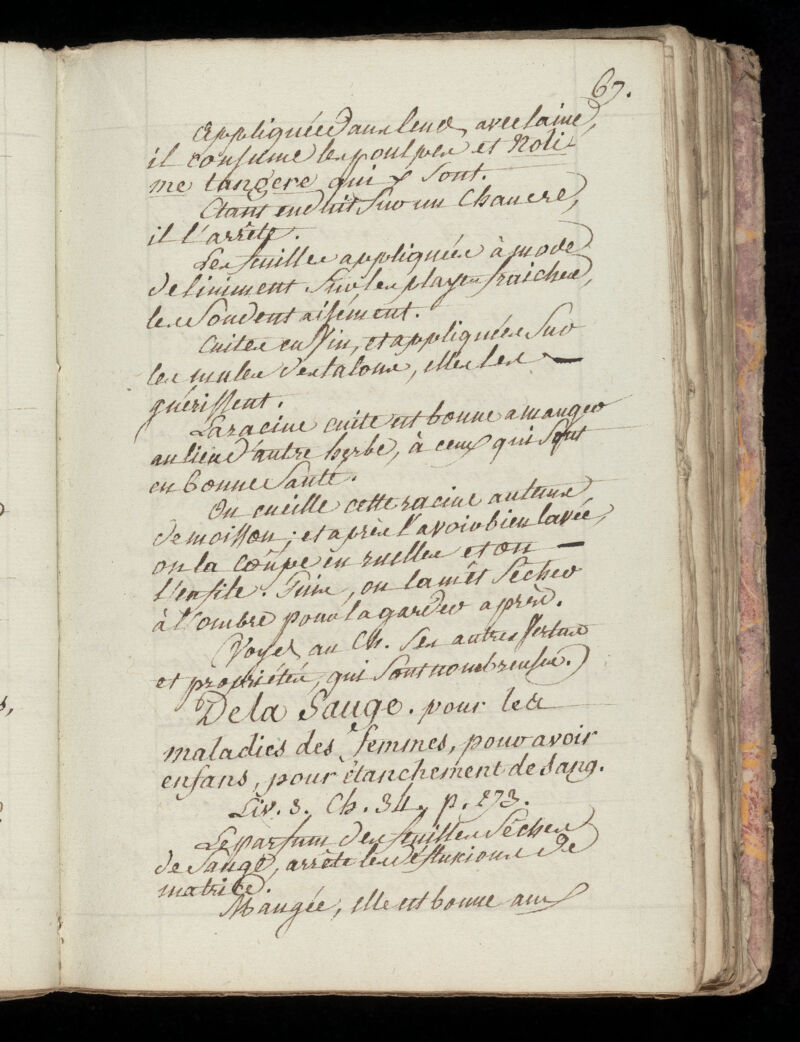 67.
Appliquée aux lend avec laine,
il consume les poulpes et Noli
me tangere qui y sont.
Etant enduit sur un Chancre,
il l'arrête.
Les feuilles appliquées à mode
de liniment sur les playes fraiches,
les soudent aisément.
Cuites en Vin, et appliquées sur
les mules des talons, elles les —
guérissent.
La racine cuite est bonne a manger
au lieu d'autre herbe, à ceux qui sont
en bonne Santé.
On cueille cette racine au tems
de moisson; et après l'avoir bien lavée,
on la coupe en ruelles et on —
l'enfile. Puis, on la met sécher
à l'ombre pour la garder après.
(Voyez au Ch. ses autres Vertus
et propriétés, qui sont nombreuses.)
De la Sauge. pour les
maladies des femmes, pour avoir
enfans, pour étanchement de sang.
Liv. 3. Ch. 34. p. 273.
Le parfum des feuilles sêches
de Sauge, arrête les defluxions de
matrice.
Mangée, elle est bonne aux